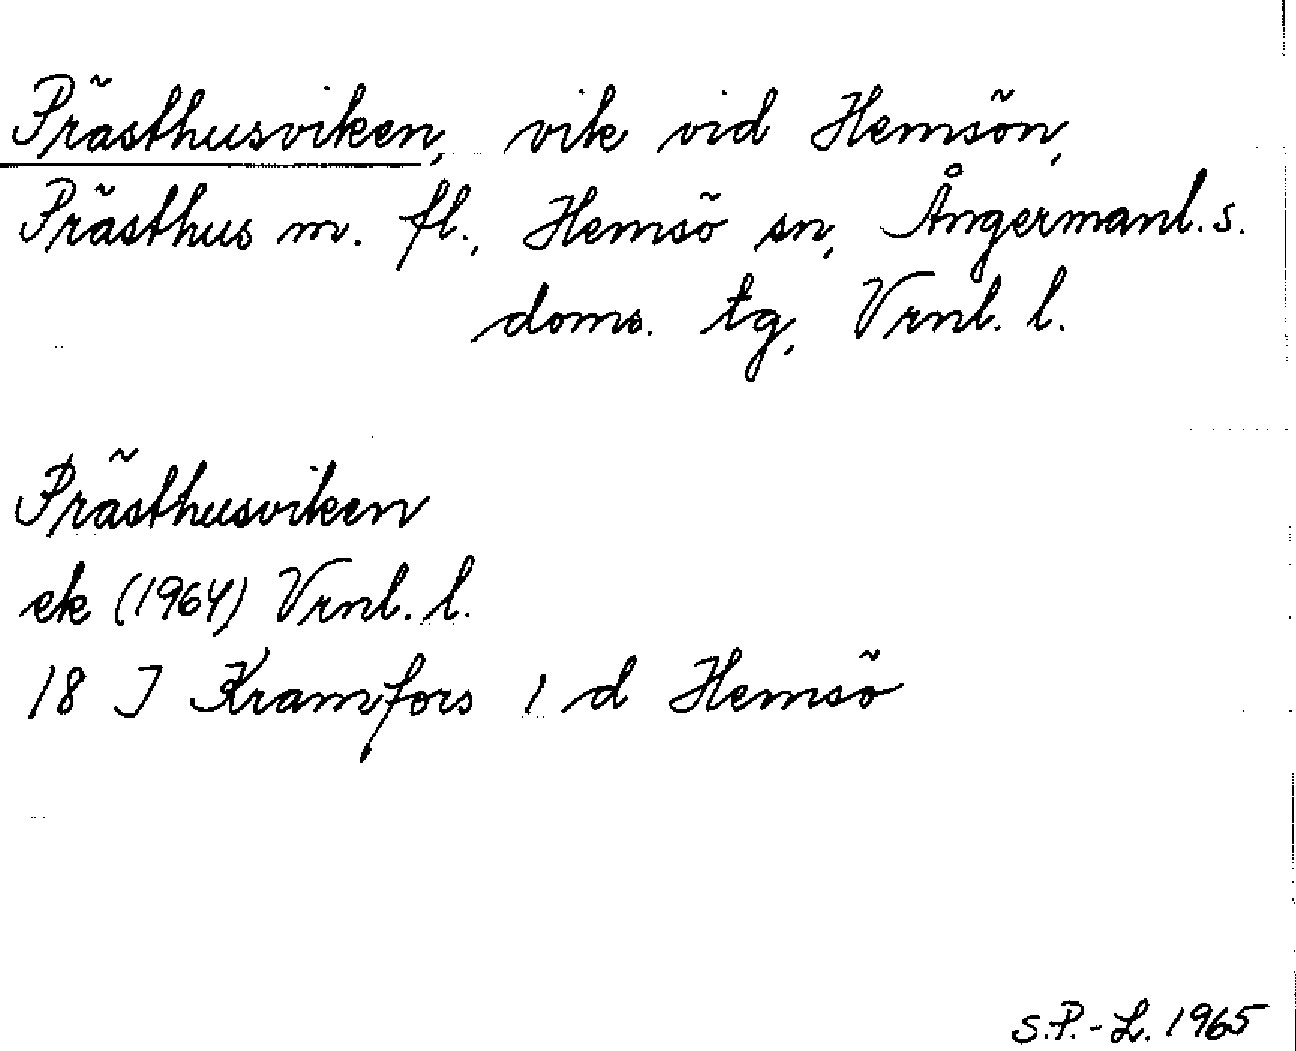 Prästhusviken, vik vid Hemsön,
Prästhus m. fl., Hemsö sn, Ångermanl. s.
doms. tg, Vrnl. l.
Prästhusviken
ek (1964) Vrnl. l.
18 J Kramfors 1 d Hemsö
S.P.-L. 1965